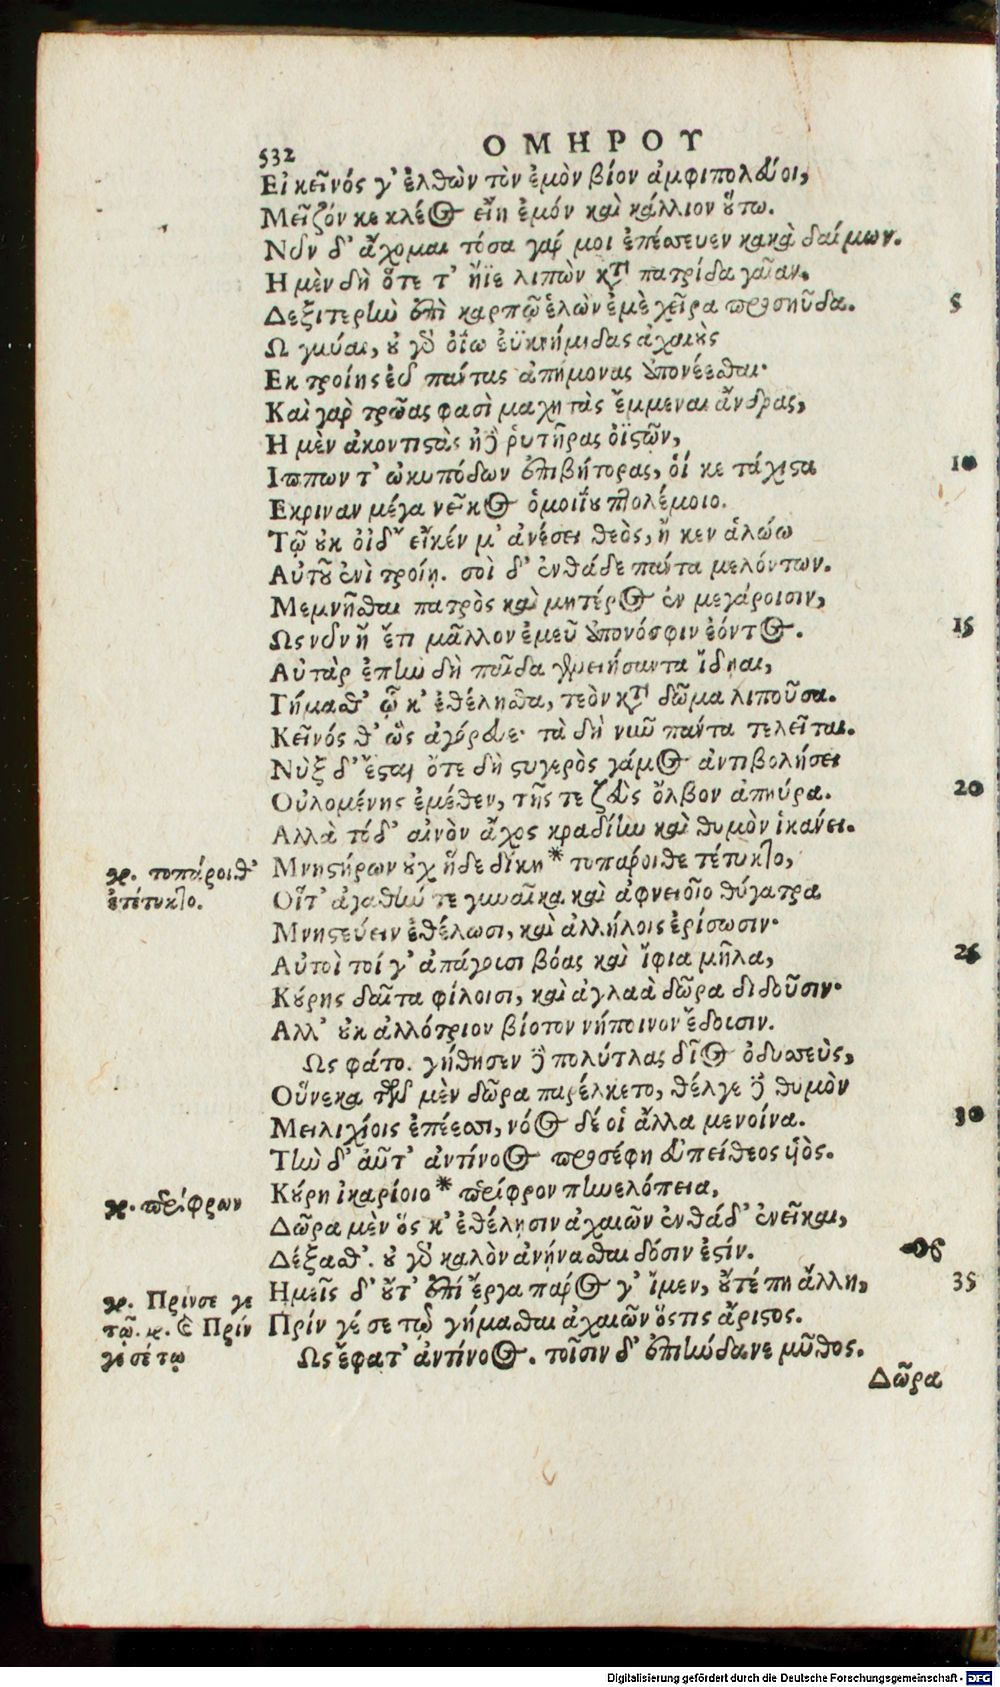 532
ΟΜΗΡΟΥ
Εἰ κεῖνός γ' ἐλθὼν τὸν ἐμὸν βίον ἀμφιπολεύοι,
Μεῖζόν κε κλέος εἴη ἐμόν καὶ κάλλιον οὕτω.
Νῦν δ' ἄχομαι τόσα γάρ μοι ἐπέσσευεν κακὰ δαίμων.
Η μὲν δὴ ὅτε τ' ἤϊε λιπὼν κατὰ πατρίδα γαῖαν.
Δεξιτερὴν ἐπὶ καρπῷ ἑλὼν ἐμὲ χεῖρα προσηῦδα.
5
Ω γύναι, οὐ γὰρ ὀΐω ἐϋκνήμιδας ἀχαιοὺς
Εκ τροίης εὖ πάντας ἀπήμονας ἀπονέεσθαι·
Καὶ γὰρ τρῶας φασὶ μαχητὰς ἔμμεναι ἄνδρας,
Η μὲν ἀκοντιστὰς ἠδὲ ῥυτῆρας ὀϊστῶν,
Ιππων τ' ὠκυπόδων ἐπιβήτορας, οἵ κε τάχιστα
10
Εκριναν μέγα νεῖκος ὁμοιΐου πτολέμοιο.
Τῷ οὐκ οἶδ' εἴκέν μ' ἀνέσει θεὸς, ἤ κεν ἁλώω
Αὐτοῦ ἐνὶ τροίῃ. σοὶ δ' ἐνθάδε πάντα μελόντων.
Μεμνῆσθαι πατρὸς καὶ μητέρος ἐν μεγάροισιν,
Ως νῦν ἢ ἔτι μᾶλλον ἐμεῦ ἀπονόσφιν ἐόντος.
15
Αὐτὰρ ἐπὴν δὴ παῖδα γενειήσαντα ἴδηαι,
Γήμασθ' ᾧ κ' ἐθέλησθα, τεὸν κατὰ δῶμα λιποῦσα.
Κεῖνός θ' ὣς ἀγόρευε· τὰ δὴ νῦν πάντα τελεῖται.
Νὺξ δ' ἔσται ὅτε δὴ στυγερὸς γάμος ἀντιβολήσει
Οὐλομένης ἐμέθεν, τῆς τε ζεὺς ὄλβον ἀπηύρα.
20
Αλλὰ τόδ' αἰνὸν ἄχος κραδίην καὶ θυμὸν ἱκάνει.
Μνηστήρων οὐχ ἥδε δίκη * τοπάροιθε τέτυκτο,
γρ. τοπάροιθ'
ἐτέτυκτο.
Οἵτ' ἀγαθήν τε γυναῖκα καὶ ἀφνειοῖο θύγατρα
Μνηστεύειν ἐθέλωσι, καὶ ἀλλήλοις ἐρίσωσιν·
Αὐτοὶ τοί γ' ἀπάγουσι βόας καὶ ἴφια μῆλα,
25
Κούρης δαῖτα φίλοισι, καὶ ἀγλαὰ δῶρα διδοῦσιν·
Αλλ' οὐκ ἀλλότριον βίοτον νήποινον ἔδουσιν.
Ως φάτο. γήθησεν δὲ πολύτλας δῖος ὀδυσσεὺς,
Οὕνεκα τῶν μὲν δῶρα παρέλκετο, θέλγε δὲ θυμὸν
Μειλιχίοις ἐπέεσσι, νόος δέ οἱ ἄλλα μενοίνα.
30
Τὴν δ' αὖτ' ἀντίνοος προσέφη εὐπείθεος υἱός.
Κούρη ἰκαρίοιο * περίφρον πηνελόπεια,
γρ. περίφρων
Δῶρα μὲν ὅς κ' ἐθέλησιν ἀχαιῶν ἐνθάδ' ἐνεῖκαι,
Δέξασθ'. οὐ γὰρ καλὸν ἀνήνασθαι δόσιν ἐστίν.
Ημεῖς δ' οὔτ' ἐπὶ ἔργα πάρος γ' ἴμεν, οὔτέ πη ἄλλη,
35
γρ. Πρίνσε γε
τῷ. κ. & Πρίν
γέ σέ τῳ
Πρίν γέ σε τῷ γήμασθαι ἀχαιῶν ὅςτις ἄριστος.
Ως ἔφατ' ἀντίνοος. τοῖσιν δ' ἐπιήνδανε μῦθος.
Δῶρα
Digitalisierung gefördert durch die Deutsche Forschungsgemeinschaft - DFG